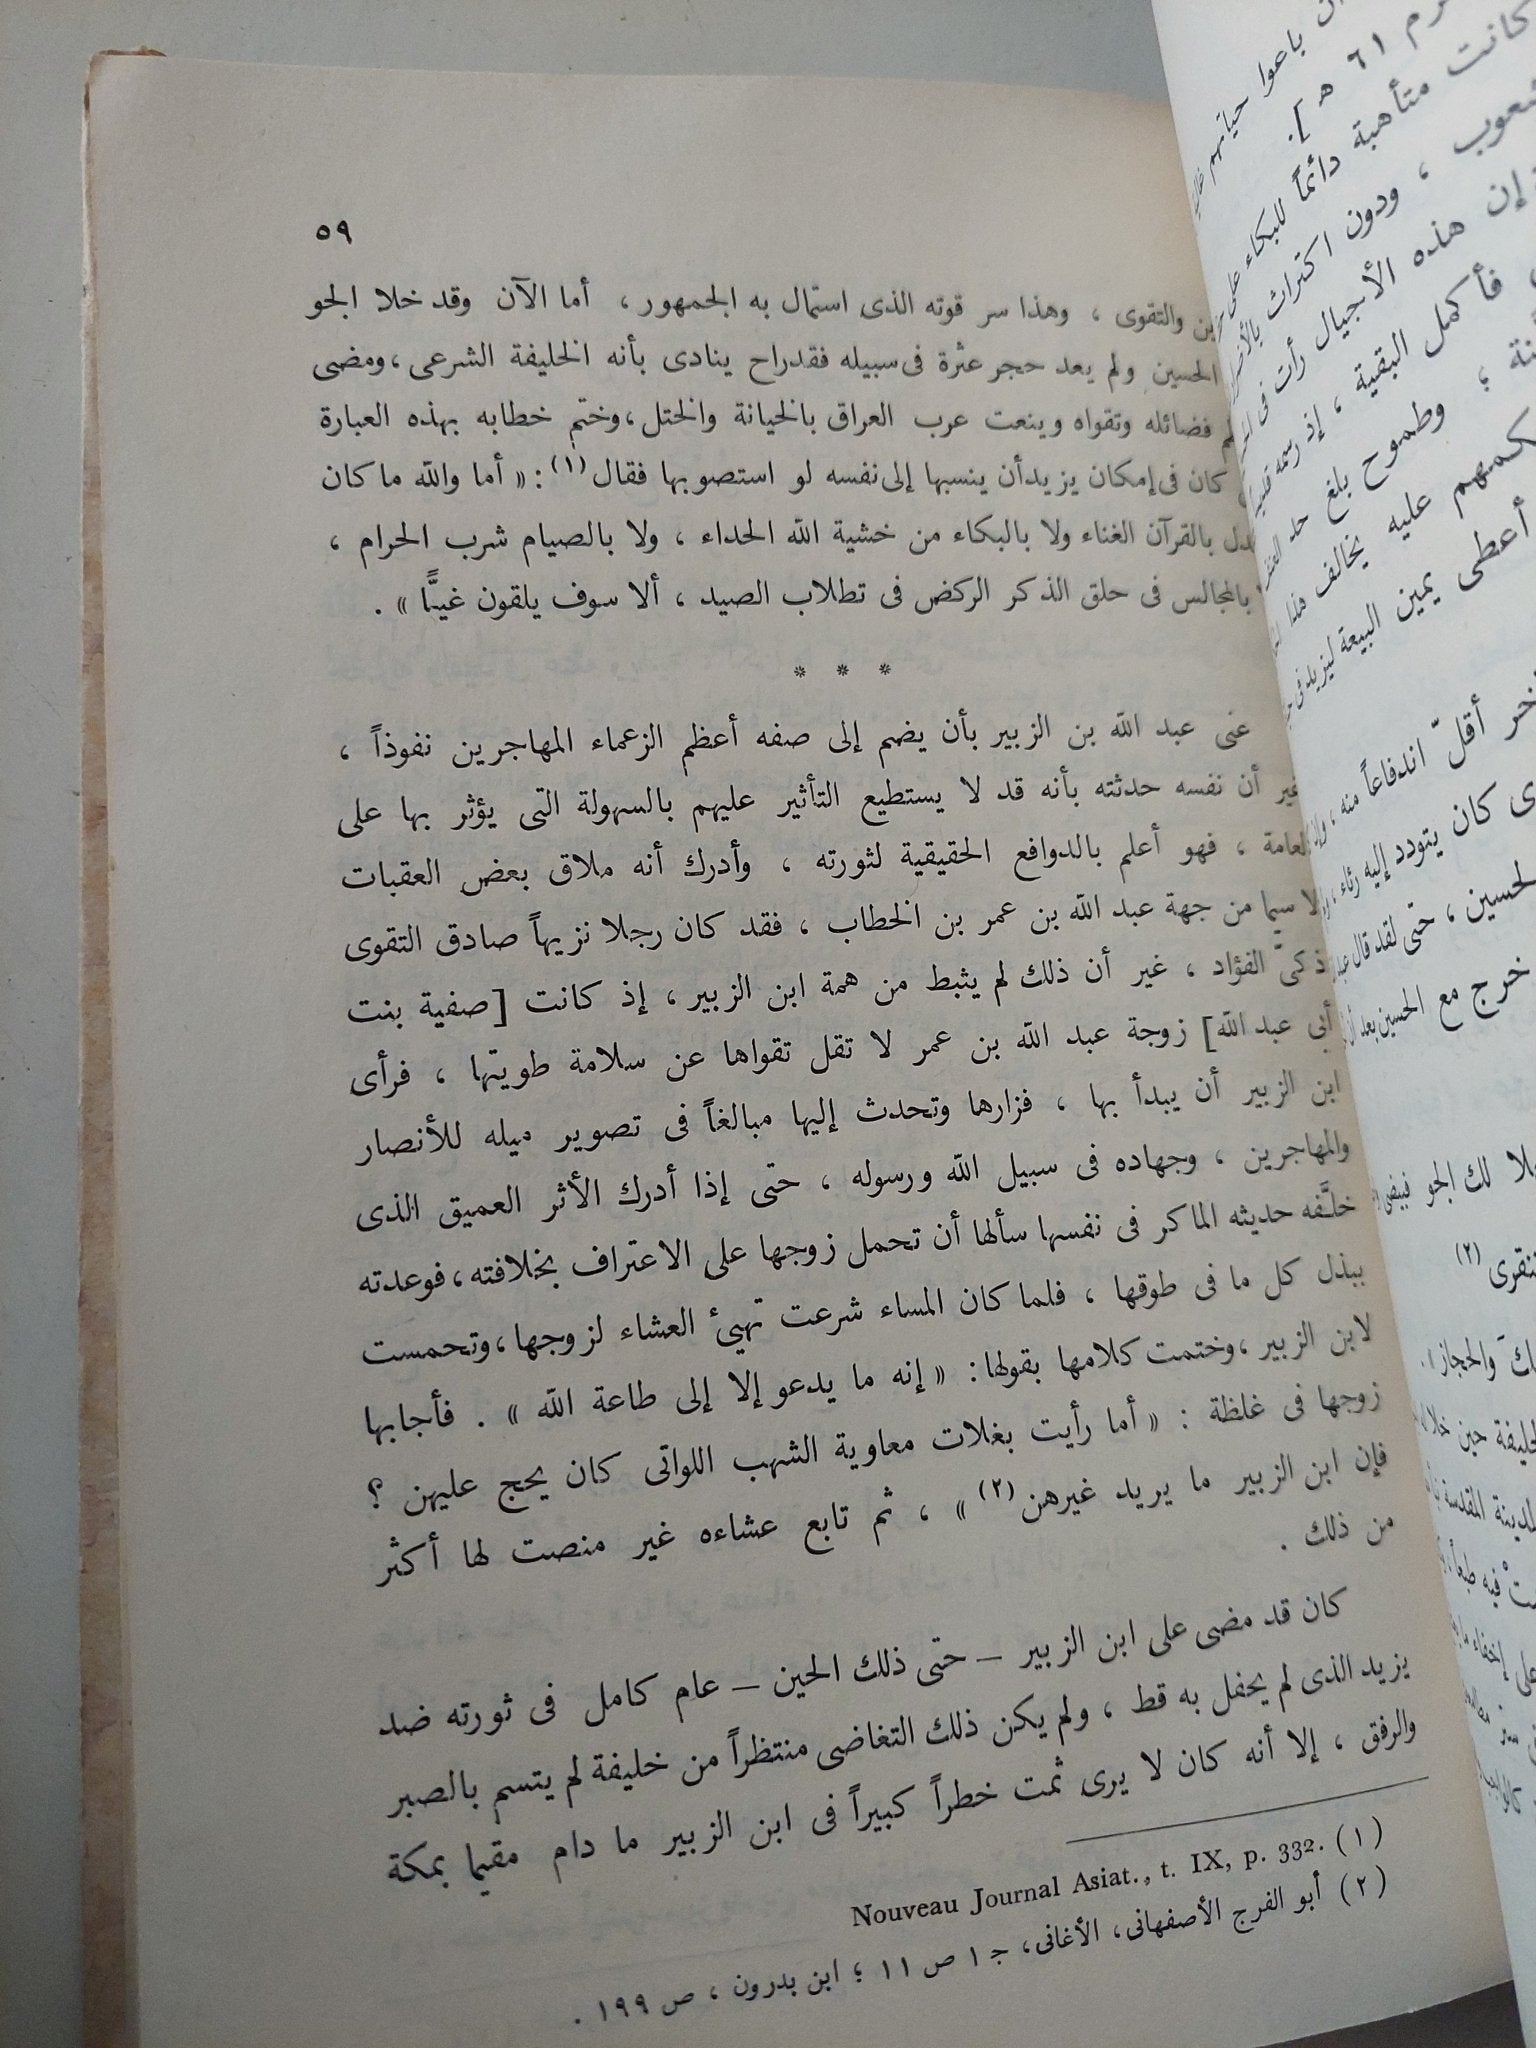 ٥٩
والتقوى ، وهذا سر قوته الذى استمال به الجمهور ، أما الآن وقد خلا الجو
الحسين ولم يعد حجر عثرة فى سبيله فقد راح ينادى بأنه الخليفة الشرعى ، ومضى
فضائله وتقواه وينعت عرب العراق بالخيانة والختل ، وختم خطابه بهذه العبارة
كان فى إمكان يزيد أن ينسبها إلى نفسه لو استصوبها فقال (١) : « أما والله ما كان
بالقرآن الغناء ولا بالبكاء من خشية الله الحداء ، ولا بالصيام شرب الحرام ،
بالمجالس فى حلق الذكر الركض فى تطلاب الصيد ، ألا سوف يلقون غيًّا » .
* * *
عنى عبد الله بن الزبير بأن يضم إلى صفه أعظم الزعماء المهاجرين نفوذاً ،
غير أن نفسه حدثته بأنه قد لا يستطيع التأثير عليهم بالسهولة التى يؤثر بها على
العامة ، فهو أعلم بالدوافع الحقيقية لثورته ، وأدرك أنه ملاق بعض العقبات
ولا سيما من جهة عبد الله بن عمر بن الخطاب ، فقد كان رجلا نزيهاً صادق التقوى
ذكىّ الفؤاد ، غير أن ذلك لم يثبط من همة ابن الزبير ، إذ كانت [صفية بنت
أبى عبد الله] زوجة عبد الله بن عمر لا تقل تقواها عن سلامة طويتها ، فرأى
ابن الزبير أن يبدأ بها ، فزارها وتحدث إليها مبالغاً فى تصوير ميله للأنصار
والمهاجرين ، وجهاده فى سبيل الله ورسوله ، حتى إذا أدرك الأثر العميق الذى
خلَّفه حديثه الماكر فى نفسها سألها أن تحمل زوجها على الاعتراف بخلافته ، فوعدته
ببذل كل ما فى طوقها ، فلما كان المساء شرعت تهيئ العشاء لزوجها ، وتحمست
لابن الزبير ، وختمت كلامها بقولها : « إنه ما يدعو إلا إلى طاعة الله » . فأجابها
زوجها فى غلظة : « أما رأيت بغلات معاوية الشهب اللواتى كان يحج عليهن ؟
فإن ابن الزبير ما يريد غيرهن (٢) » ، ثم تابع عشاءه غير منصت لها أكثر
من ذلك .
كان قد مضى على ابن الزبير – حتى ذلك الحين – عام كامل فى ثورته ضد
يزيد الذى لم يحفل به قط ، ولم يكن ذلك التغاضى منتظراً من خليفة لم يتسم بالصبر
والرفق ، إلا أنه كان لا يرى ثمت خطراً كبيراً فى ابن الزبير ما دام مقيما بمكة
(١) Nouveau Journal Asiat., t. IX, p. 332.
(٢) أبو الفرج الأصفهانى ، الأغانى ، ج ١ ص ١١ ؛ ابن بدرون ، ص ١٩٩ .
باعوا حياتهم
٦١ هـ ] .
كانت متأهبة دائماً للبكاء على
، ودون اكتراث
إن هذه الأجيال رأت فى
فأكمل البقية ، إذ رسمه
وطموح بلغ حد
عليه يخالف هذا
أعطى يمين البيعة ليزيد فى
أقلّ اندفاعاً منه ،
كان يتودد إليه رئاء ،
الحسين ، حتى لقد قال
خرج مع الحسين بعد أن
لك الجو فبيضى
تنقرى (٢)
والحجاز » .
الخليفة حين خلا
المدينة المقدسة
فيه طبعاً
على إخفاء